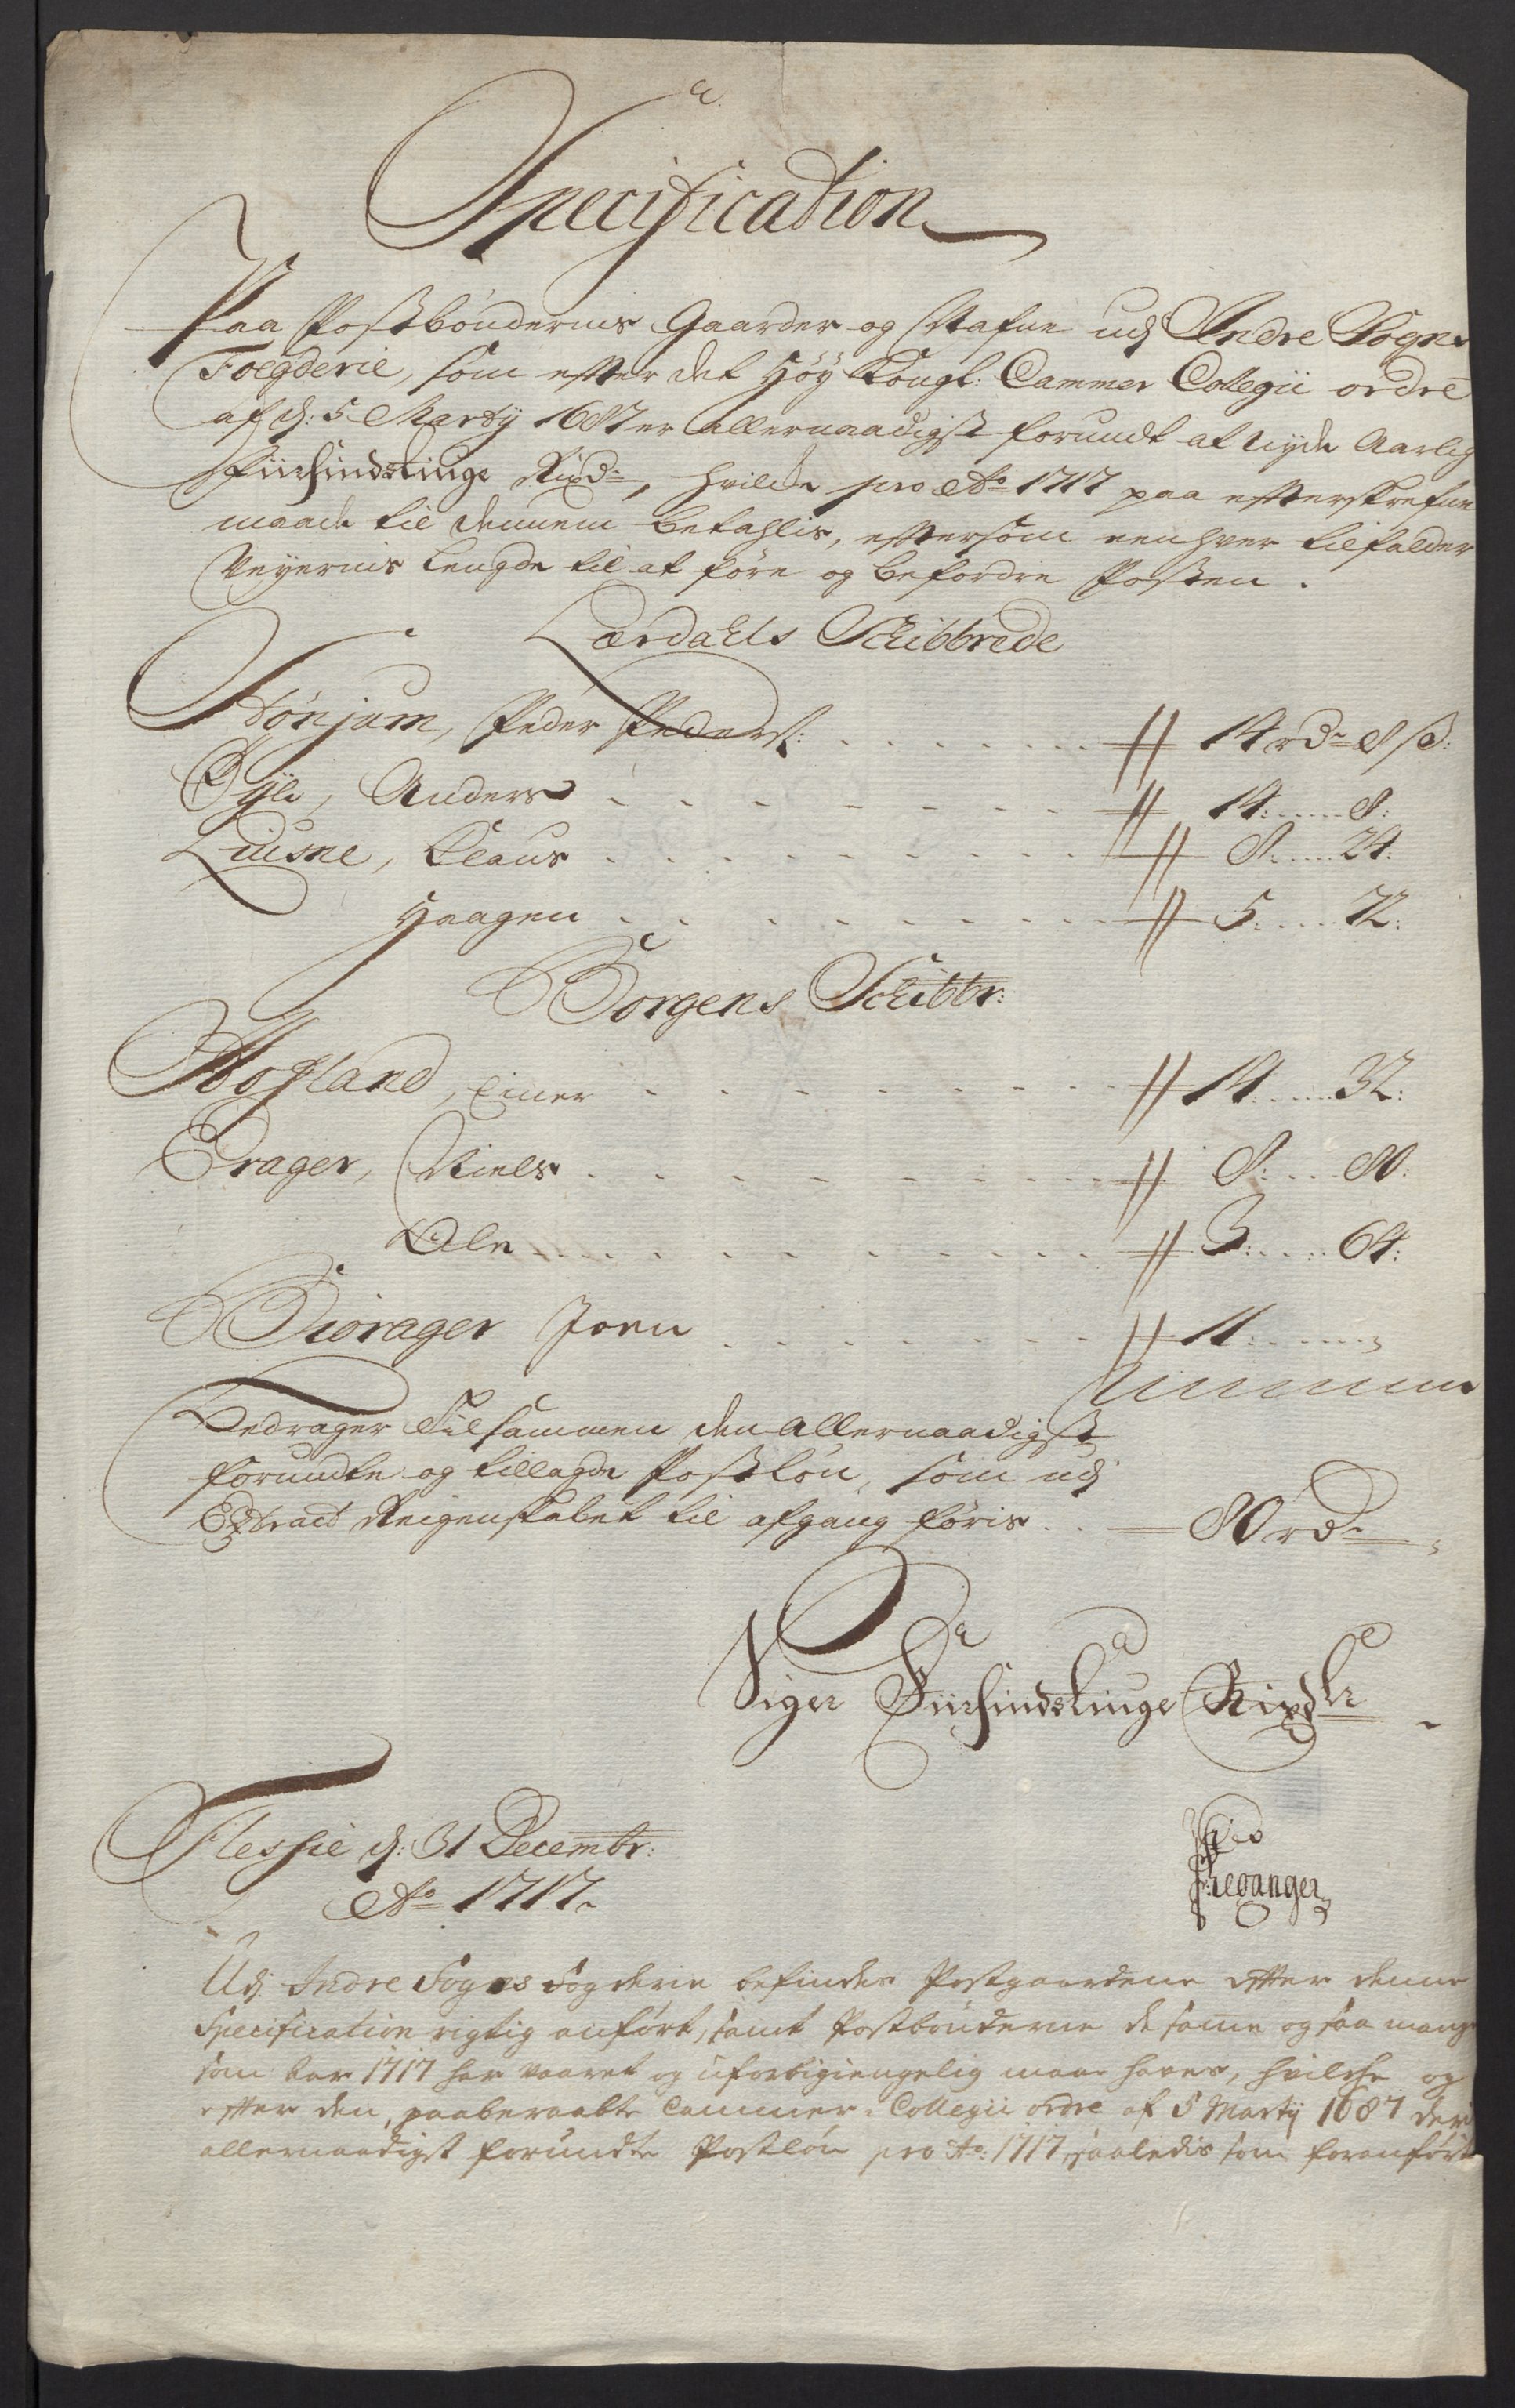 Specification
Paa Postböndernis Gaarder og Nafne udj Indre Sogns
Foegderie, som efter det Höy Kongl: Cammer Collegii ordre
af d: 5 Martij 1687 er allernaadigst forundt at nyde Aarlig
Fiirsindstiuge Rixd:, hvilche pro Ao 1717 paa efterskrefne
maade til dennem betahlis, eftersom eenhver tilfalder
Veyernis Lengde til at före og befordre Posten.
Lærdahls Schibbrede
Tönjum, Peder Peders: 14 rd 8 s:
Øÿe, Anders 14: 8:
Liusne, Claus 8: 24:
Haagen 5: 72:
Borgens Schibbr:
Hogland, Einer 14: 32:
Erager, Niels 8: 80:
Ole 3: 64:
Biörager Joen 11:
Summa
Bedrager Tilsammen den allernaadigst
forundte og tillagde Postlön, som udj
Extract Reigenskabet til afgang föris 80 rd
Siger Fiirsindstiuge Rixdlr
Flessie d: 31 Decembr:
Ao 1717.
Leganger
Udj Indre Sogns Fogderie befindes Postgaardene efter denne
Specification rigtig anfört, samt Postbönderne de samme og saa mange
som Aar 1717 har vaaret og uforbigiengelig maa haves, hvilche og
efter den paaberaabte Cammer-Collegii ordre af 5 Martij 1687 den
allernaadigst forundte Postlön pro Ao: 1717, saaledis som foranfört